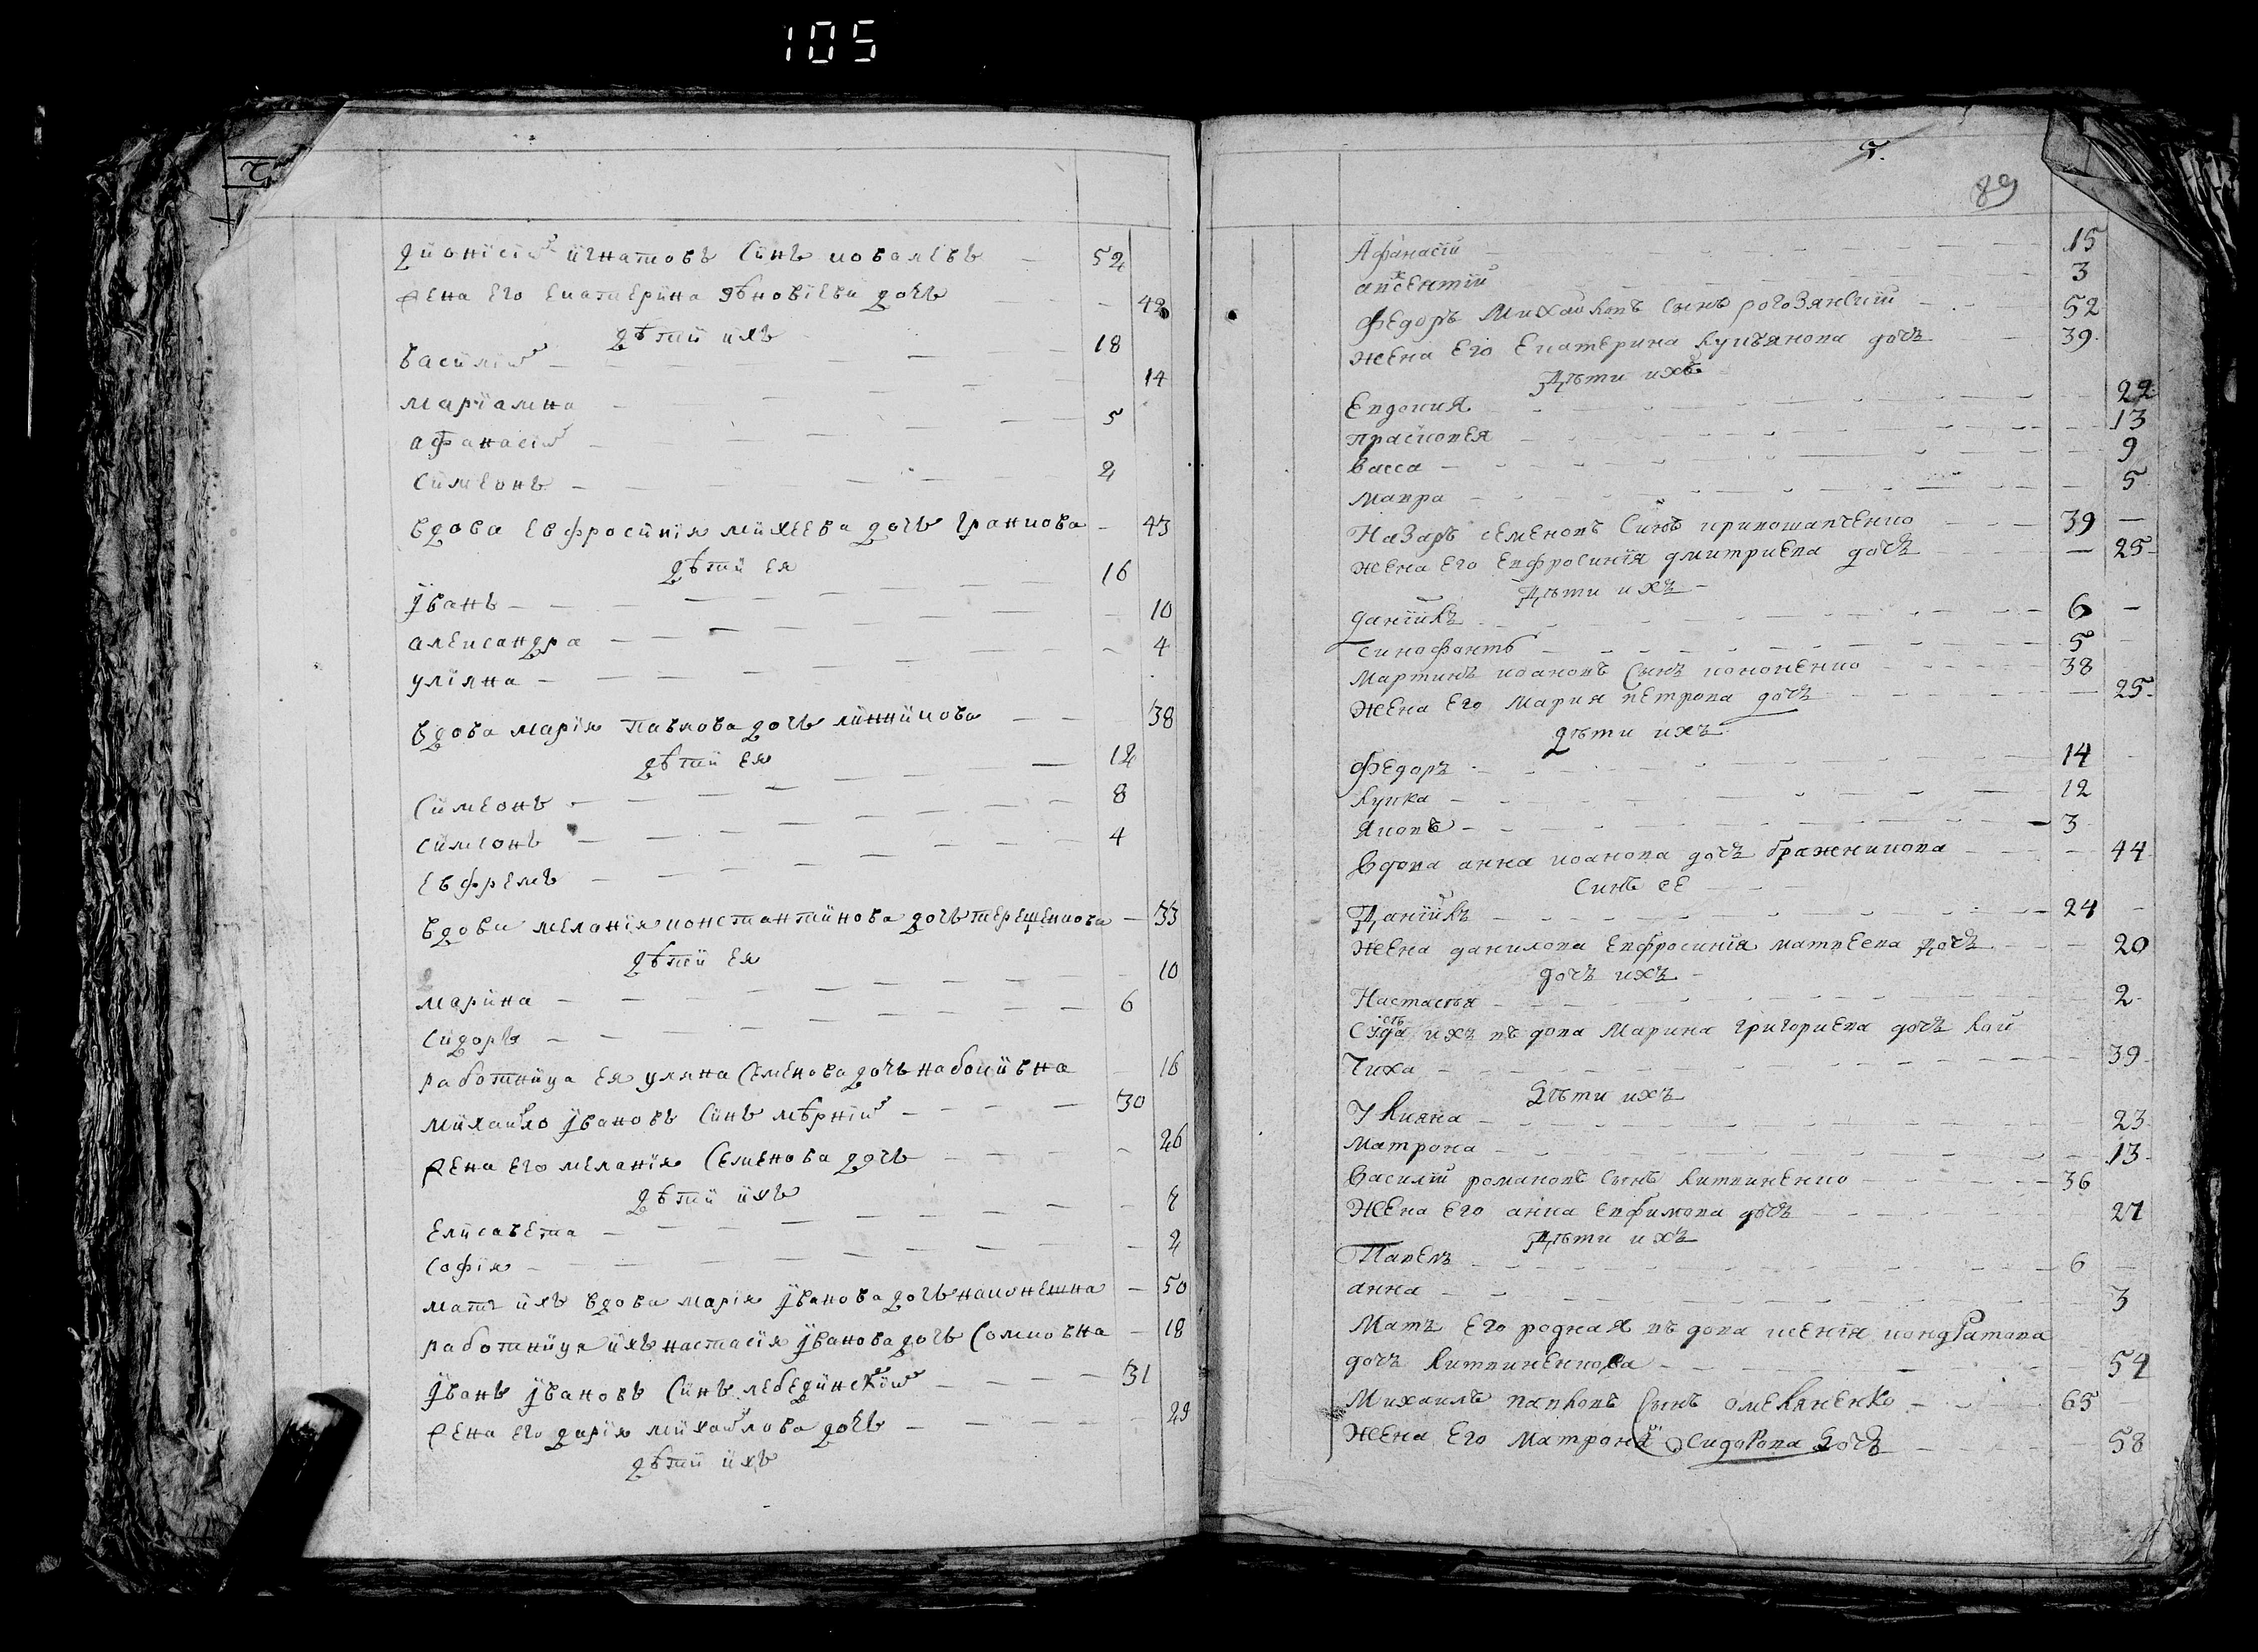 105
Дионісій Игнатовъ Синъ ковалевъ — 52
Жена его екатерина — дочь — 42
дѣти ихъ
василій — 18
маріамна — 14
афанасій — 5
Симеонъ — 2
вдова евфросинія михеева дочь гранкова — 43
дѣти ея
Иванъ — 16
александра — 10
уліяна — 4
вдова марія павлова дочь линникова — 38
дѣти ея
Симеонъ — 12
Симеонъ — 8
Евфремъ — 4
вдова меланія константинова дочь терещенкова — 33
дѣти ея
марина — 10
Сидоръ — 6
работница ея уляна Семенова дочь набоковна — 16
михайло Ивановъ Синъ мѣрній — 30
Жена его меланія Семенова дочь — 26
дѣти ихъ
Елисавета — 8
Софія — 2
мать ихъ вдова марія Иванова дочь — 50
работница ихъ настасія Иванова дочь Сомковна — 18
Иванъ Ивановъ Синъ лебединскій — 31
Жена его дарія михайлова дочь — 29
дѣти ихъ
5.
89
Афанасій — 15
авксентий — 3
Федоръ Михайловъ сынъ рогозянский — 52
жена Его Екатерина лукъянова дочъ — 39
Дѣти ихъ
Евдокия — 22
прасковея — 13
васса — 9
мавра — 5
Назаръ семеновъ Синъ кривошапченко — 39 —
жена его Евфросиния дмитриева дочъ — 25
Дѣти ихъ
даниилъ — 6 —
ксинофонтъ — 5
Мартинъ иоановъ Сынъ кононенко — 38
жена Его Мария петрова дочъ — 25
дѣти ихъ
Федоръ — 14
лука — 12
Яковъ — 3
Вдова анна иоанова дочъ бражникова — 44
Синъ ее
Даниилъ — 24
жена данилова Евфросиния матвеева дочъ — 20
дочъ ихъ
Настасъя — 2
ихъ въдова Марина григориева дочъ кол
Чиха — 39
Дѣти ихъ
Улияна — 23
матрона — 13
Василий романовъ сынъ литвиненко — 36
Жена Его анна Евфимова дочъ — 27
Дѣти ихъ
Павелъ — 6
анна — 3
Матъ Его родная въдова ксения кондратова
дочъ литвиненкова — 54
Михаилъ павловъ Сынъ омеляненко — 65
Жена Его Матрона Сидорова Дочъ — 58